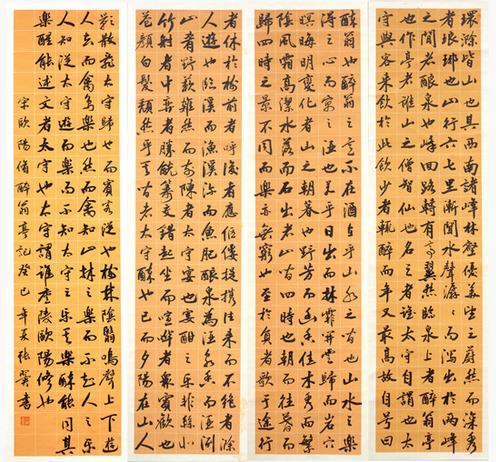 環滁皆山也其西南諸峰林壑優美望之蔚然而深秀
者琅琊也山行六七里漸聞水聲潺潺而瀉出於兩峰
之間者釀泉也峰回路轉有亭翼然臨泉上者醉翁亭
也作亭者誰山之僧智仙也名之者誰太守自謂也太
守與客來飲於此飲少輒醉而年又最高故自號曰
醉翁也醉翁之意不在酒在乎山水之間也山水之樂
得之心而寓之酒也若夫日出而林霏開雲歸而岩穴
暝晦明變化者山間之朝暮也野芳發而幽香佳木秀而繁
陰風霜高潔水落而石出者山間之四時也朝而往暮而
歸四時之景不同而樂亦無窮也至於負者歌于途行
者休於樹前者呼後者應傴僂提攜往來而不絕者滁
人遊也臨溪而漁溪深而魚肥釀泉為酒泉香而酒洌
山肴野蔌雜然而前陳者太守宴也宴酣之樂非絲非
竹射者中弈者勝觥籌交錯起坐而喧嘩者眾賓歡也
蒼顏白髮頹然乎其間者太守醉也已而夕陽在山人
影散亂太守歸而賓客從也樹林陰翳鳴聲上下遊
人去而禽鳥樂也然而禽鳥知山林之樂而不知人之樂
人知從太守遊而樂而不知太守之樂其樂也醉能同其
樂醒能述以文者太守也太守謂誰廬陵歐陽修也
宋歐陽脩醉翁亭記癸巳年夏張翼書